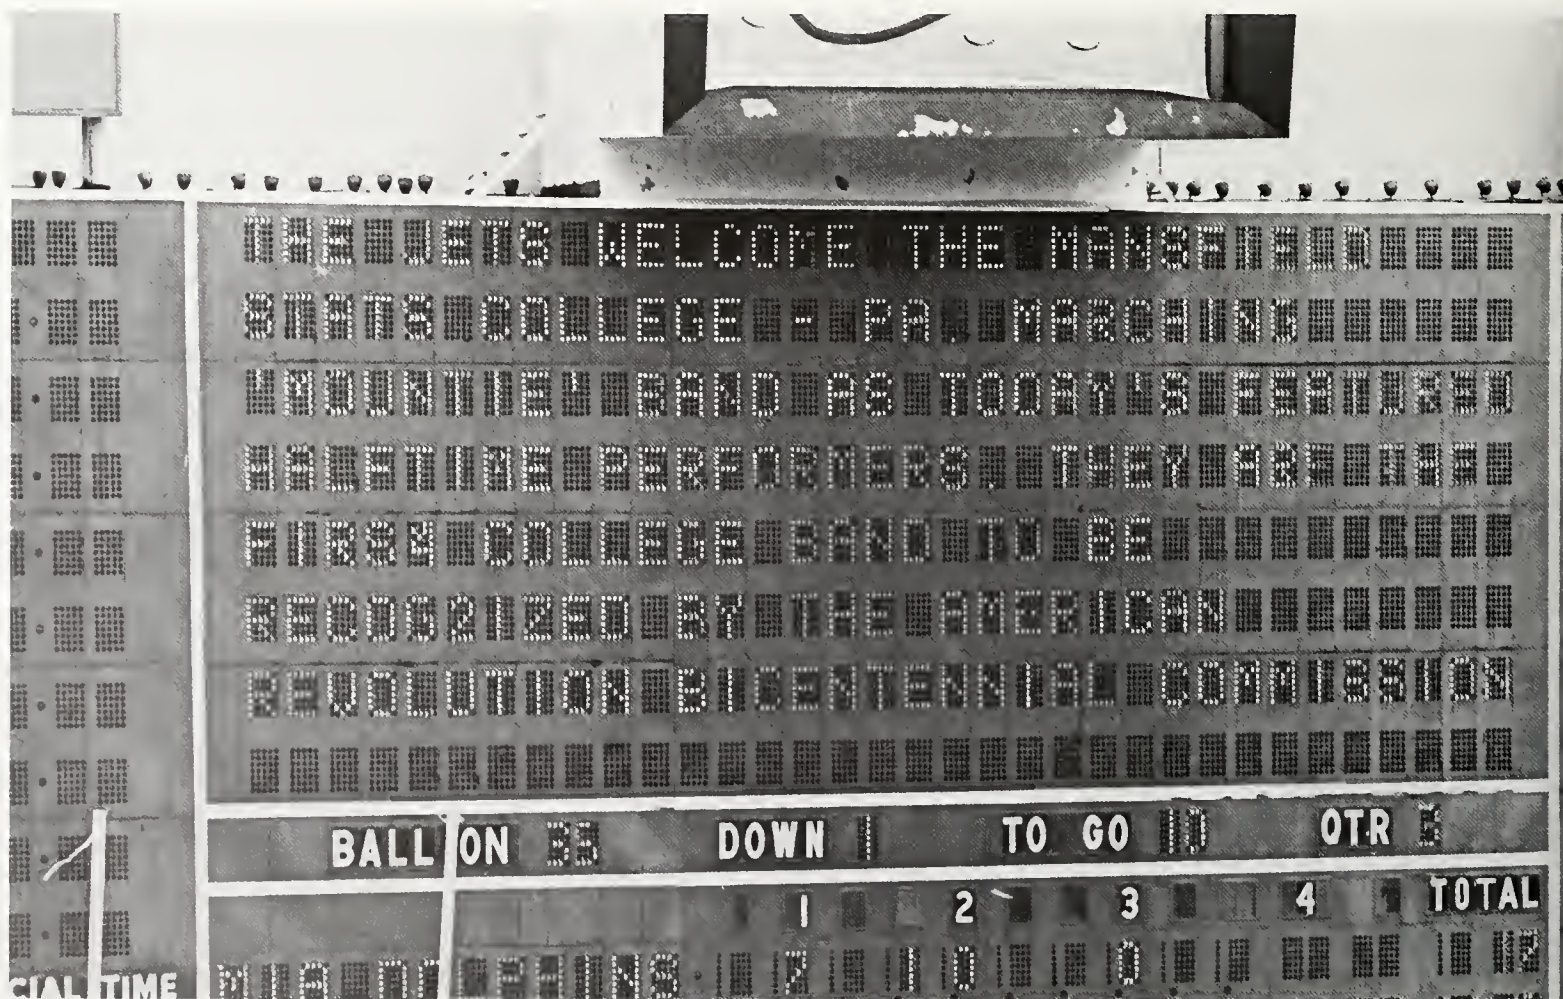 THE JETS WELCOME THE MANSFIELD
STATE COLLEGE - PA. MARCHING
'MOUNTIE' BAND AS TODAY'S FEATURED
HALFTIME PERFORMERS. THEY ARE THE
FIRST COLLEGE BAND TO BE
RECOGNIZED BY THE AMERICAN
REVOLUTION BICENTENNIAL COMMISSION
BALL ON 35 DOWN 1 TO GO 10 QTR
1 2 3 4 TOTAL
CIAL TIME MIA 7 10 0